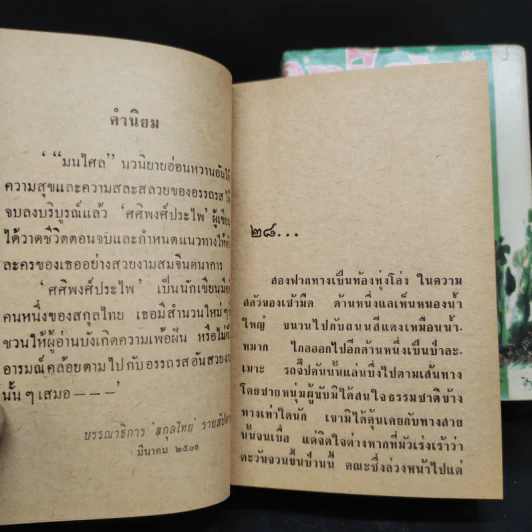 คำนิยม
' "มนไศล" นวนิยายอ่อนหวานอันให้
ความสุขและความสละสลวยของอรรถรส ได้
จบลงบริบูรณ์แล้ว 'ศศิพงศ์ประไพ' ผู้เขียน
ได้วาดชีวิตตอนจบและกำหนดแนวทางให้
ละครของเธออย่างสวยงามสมจินตนาการ
'ศศิพงศ์ประไพ' เป็นนักเขียน
คนหนึ่งของสกุลไทย เธอมีสำนวนใหม่ๆ
ชวนให้ผู้อ่านบังเกิดความเพ้อฝัน หรือไม่ก็
อารมณ์คล้อยตามไปกับอรรถรสอันสวยงาม
นั้นๆ เสมอ — — —'
บรรณาธิการ 'สกุลไทย' รายสัปดาห์
มีนาคม
๒๘...
สองฟากทางเป็นท้องทุ่งโล่ง ในความ
สลัวของเช้ามืด ด้านหนึ่งแลเห็นหนองน้ำ
ใหญ่ ขนานไปกับถนนสีแดงเหมือนน้ำ-
หมาก ไกลออกไปอีกด้านหนึ่งเป็นป่าละ-
เมาะ รถจี๊ปคันนั้นแล่นบึ่งไปตามเส้นทาง
โดยชายหนุ่มผู้ขับมิได้สนใจธรรมชาติข้าง
ทางเท่าใดนัก เขามิได้คุ้นเคยกับทางสาย
นั้นจนเบื่อ แต่จิตใจต่างหากที่มัวเร่งเร้าว่า
ตะวันจวนขึ้นป่านนี้ คณะซึ่งล่วงหน้าไปแต่